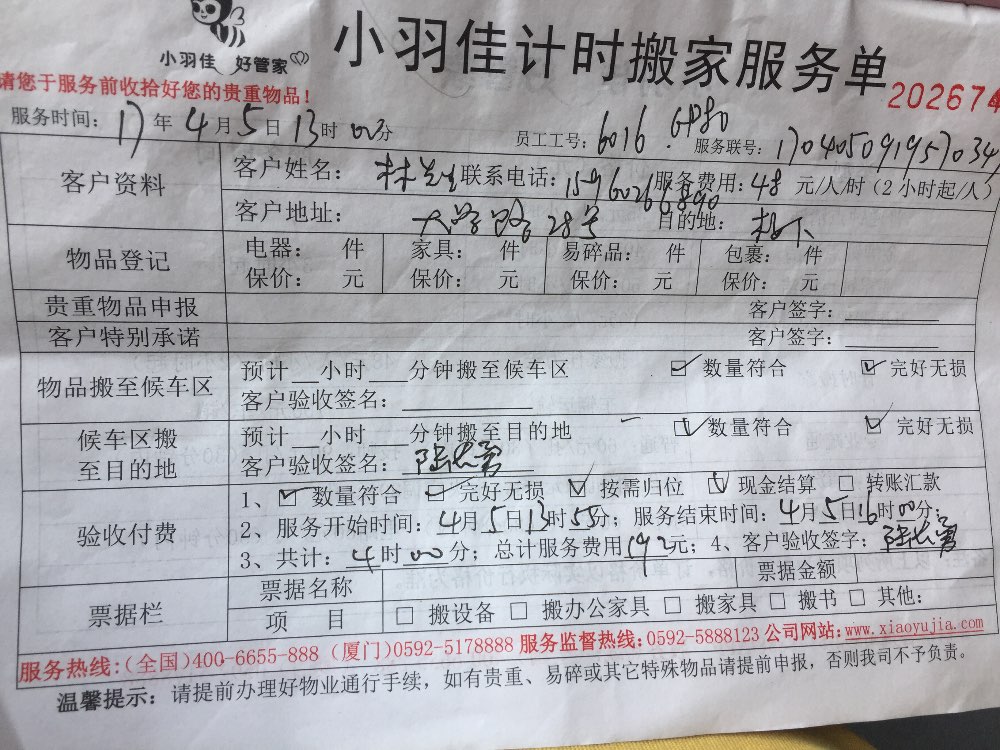 小羽佳 好管家
小羽佳计时搬家服务单
请您于服务前收拾好您的贵重物品！
202674
服务时间：17年4月5日13时00分 员工工号：6016. GP80 服务联号：170405091957034
客户资料
客户姓名：林先生 联系电话：15960266890 服务费用：48 元/人/时（2小时起/人）
客户地址：大学路28号 目的地：楼下
物品登记
电器： 件 家具： 件 易碎品： 件 包裹： 件
保价： 元 保价： 元 保价： 元 保价： 元
贵重物品申报 客户签字：
客户特别承诺 客户签字：
物品搬至候车区
预计 小时 分钟搬至候车区 ☑ 数量符合 ☑ 完好无损
客户验收签名：
候车区搬至目的地
预计 小时 分钟搬至目的地 ☑ 数量符合 ☑ 完好无损
客户验收签名：
验收付费
1、☑ 数量符合 ☑ 完好无损 ☑ 按需归位 ☑ 现金结算 □ 转账汇款
2、服务开始时间：4月5日13时55分；服务结束时间：4月5日16时00分；
3、共计：4时00分；总计服务费用192元；4、客户验收签字：
票据栏
票据名称 票据金额
项 目 □ 搬设备 □ 搬办公家具 □ 搬家具 □ 搬书 □ 其他：
服务热线：(全国)400-6655-888 (厦门)0592-5178888 服务监督热线：0592-5888123 公司网站：www.xiaoyujia.com
温馨提示：请提前办理好物业通行手续，如有贵重、易碎或其它特殊物品请提前申报，否则我司不予负责。